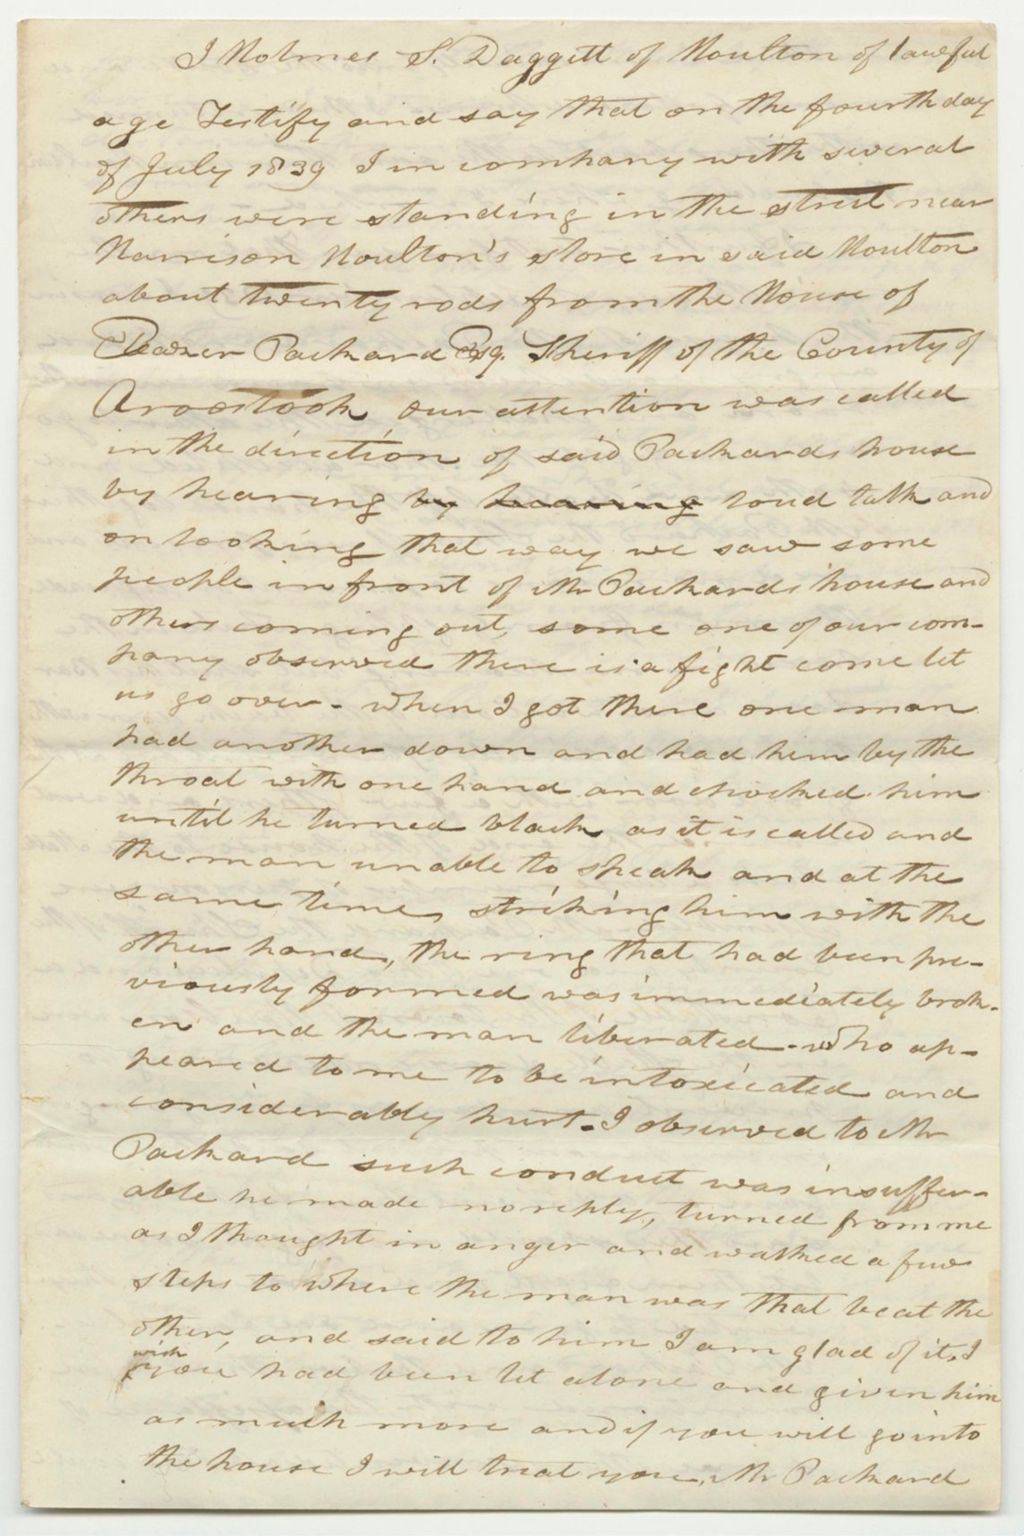 I Holmes S. Daggett of Houlton of lawful
age Testify and say that on the fourth day
of July 1839 I in company with several
others were standing in the street near
Harrison Houlton's store in said Houlton
about twenty rods from the House of
Eleazer Packard Esq. Sheriff of the County of
Aroostook, our attention was called
in the direction of said Packards house
by hearing by hearing loud talk and
on looking that way we saw some
people in front of Mr Packards house and
others coming out, some one of our com-
pany observed there is a fight come let
us go over - when I got there one man
had another down and had him by the
throat with one hand and chocked him
until he turned black as it is called and
the man unable to speak and at the
same time, striking him with the
other hand, the ring that had been pre-
viously formed was immediately brok-
en and the man liberated - who ap-
peared to me to be intoxicated and
considerably hurt. I observed to Mr
Packard such conduct was insuffer-
able he made no reply, turned from me
as I thought in anger and walked a few
steps to where the man was that beat the
other, and said to him I am glad of it, I
wish
you had been let alone and given him
as much more and if you will go into
the house I will treat you, Mr Packard